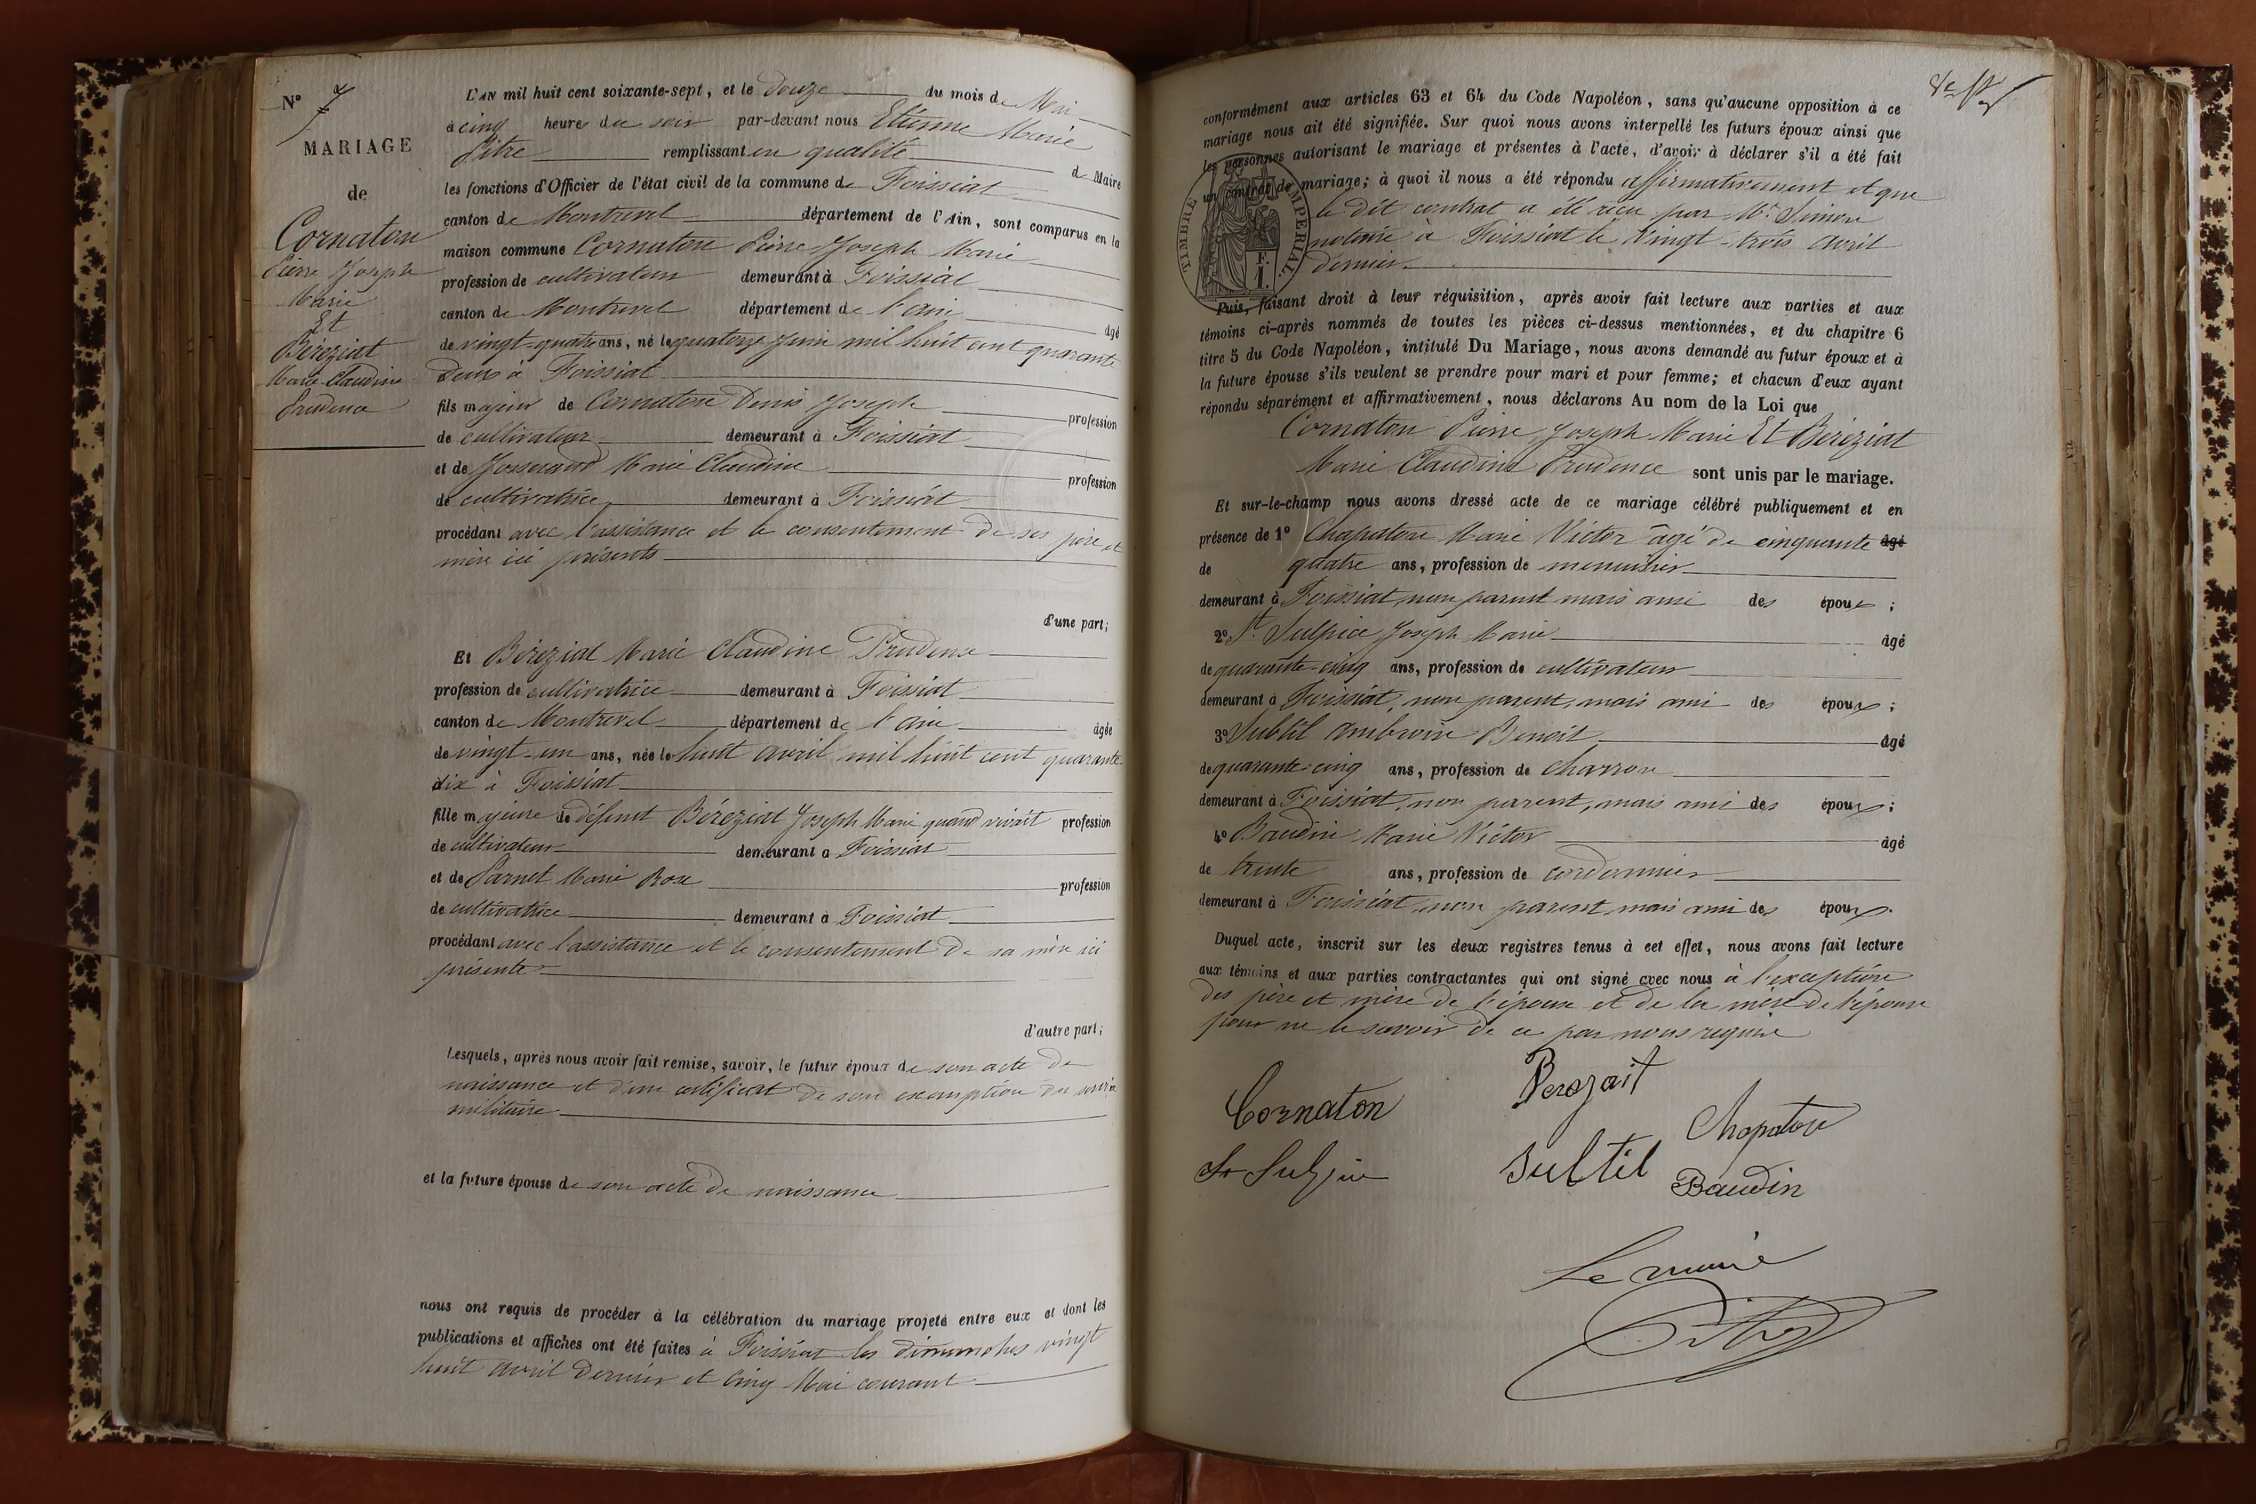 N° 7
MARIAGE
de
Cornaton
Pierre Joseph
Marie
Et
Béréziat
Marie Claudine
Prudence
L'AN mil huit cent soixante-sept, et le douze du mois de Mai
à cinq heures du soir par-devant nous Etienne Marie
Pitre remplissant en qualité de Maire
les fonctions d'Officier de l'état civil de la commune de Foissiat
canton de Montrevel département de l'Ain, sont comparus en la
maison commune Cornaton Pierre Joseph Marie
profession de cultivateur demeurant à Foissiat
canton de Montrevel département de l'ain âgé
de vingt-quatre ans, né le quatorze juin mil huit cent quarante
deux à Foissiat
fils majeur de Cornaton Denis Joseph profession
de cultivateur demeurant à Foissiat
et de Josserand Marie Claudine profession
de cultivatrice demeurant à Foissiat
procédant avec l'assistance et le consentement de ses père et
mère ici présents
d'une part;
Et Béréziat Marie Claudine Prudence
profession de cultivatrice demeurant à Foissiat
canton de Montrevel département de l'ain âgée
de vingt-un ans, née le huit avril mil huit cent quarante
six à Foissiat
fille majeure de défunt Béréziat Joseph Marie quand vivait profession
de cultivateur demeurant à Foissiat
et de Parnet Marie Rose profession
de cultivatrice demeurant à Foissiat
procédant avec l'assistance et le consentement de sa mère ici
présente
d'autre part;
Lesquels, après nous avoir fait remise, savoir, le futur époux de son acte de
naissance et d'un certificat de son exemption du service
militaire
et la future épouse de son acte de naissance
nous ont requis de procéder à la célébration du mariage projeté entre eux et dont les
publications et affiches ont été faites à Foissiat les dimanches vingt
huit avril dernier et cinq Mai courant
conformément aux articles 63 et 64 du Code Napoléon, sans qu'aucune opposition à ce
mariage nous ait été signifiée. Sur quoi nous avons interpellé les futurs époux ainsi que
les personnes autorisant le mariage et présentes à l'acte, d'avoir à déclarer s'il a été fait
un contrat de mariage; à quoi il nous a été répondu affirmativement et que
le dit contrat a été reçu par Me Simon
notaire à Foissiat le vingt-trois avril
dernier
TIMBRE IMPERIAL.
F.
1.
Puis, faisant droit à leur réquisition, après avoir fait lecture aux parties et aux
témoins ci-après nommés de toutes les pièces ci-dessus mentionnées, et du chapitre 6
titre 5 du Code Napoléon, intitulé Du Mariage, nous avons demandé au futur époux et à
la future épouse s'ils veulent se prendre pour mari et pour femme; et chacun d'eux ayant
répondu séparément et affirmativement, nous déclarons Au nom de la Loi que
Cornaton Pierre Joseph Marie Et Béréziat
Marie Claudine Prudence sont unis par le mariage.
Et sur-le-champ nous avons dressé acte de ce mariage célébré publiquement et en
présence de 1° Chapaton Marie Victor âgé de cinquante âgé
de quatre ans, profession de menuisier
demeurant à Foissiat, non parent mais ami des époux;
2° St Sulpice Joseph Marie âgé
de quarante-cinq ans, profession de cultivateur
demeurant à Foissiat, non parent, mais ami des époux;
3° Subtil Ambroise Benoit âgé
de quarante-cinq ans, profession de charron
demeurant à Foissiat, non parent, mais ami des époux;
4° Baudin Marie Victor âgé
de trente ans, profession de cordonnier
demeurant à Foissiat, non parent, mais ami des époux.
Duquel acte, inscrit sur les deux registres tenus à cet effet, nous avons fait lecture
aux témoins et aux parties contractantes qui ont signé avec nous à l'exception
des père et mère de l'époux et de la mère de l'épouse
pour ne le savoir de ce par nous requise
Cornaton
Berezait
Chapaton
St Sulpice
Subtil
Baudin
Le maire
Pitre